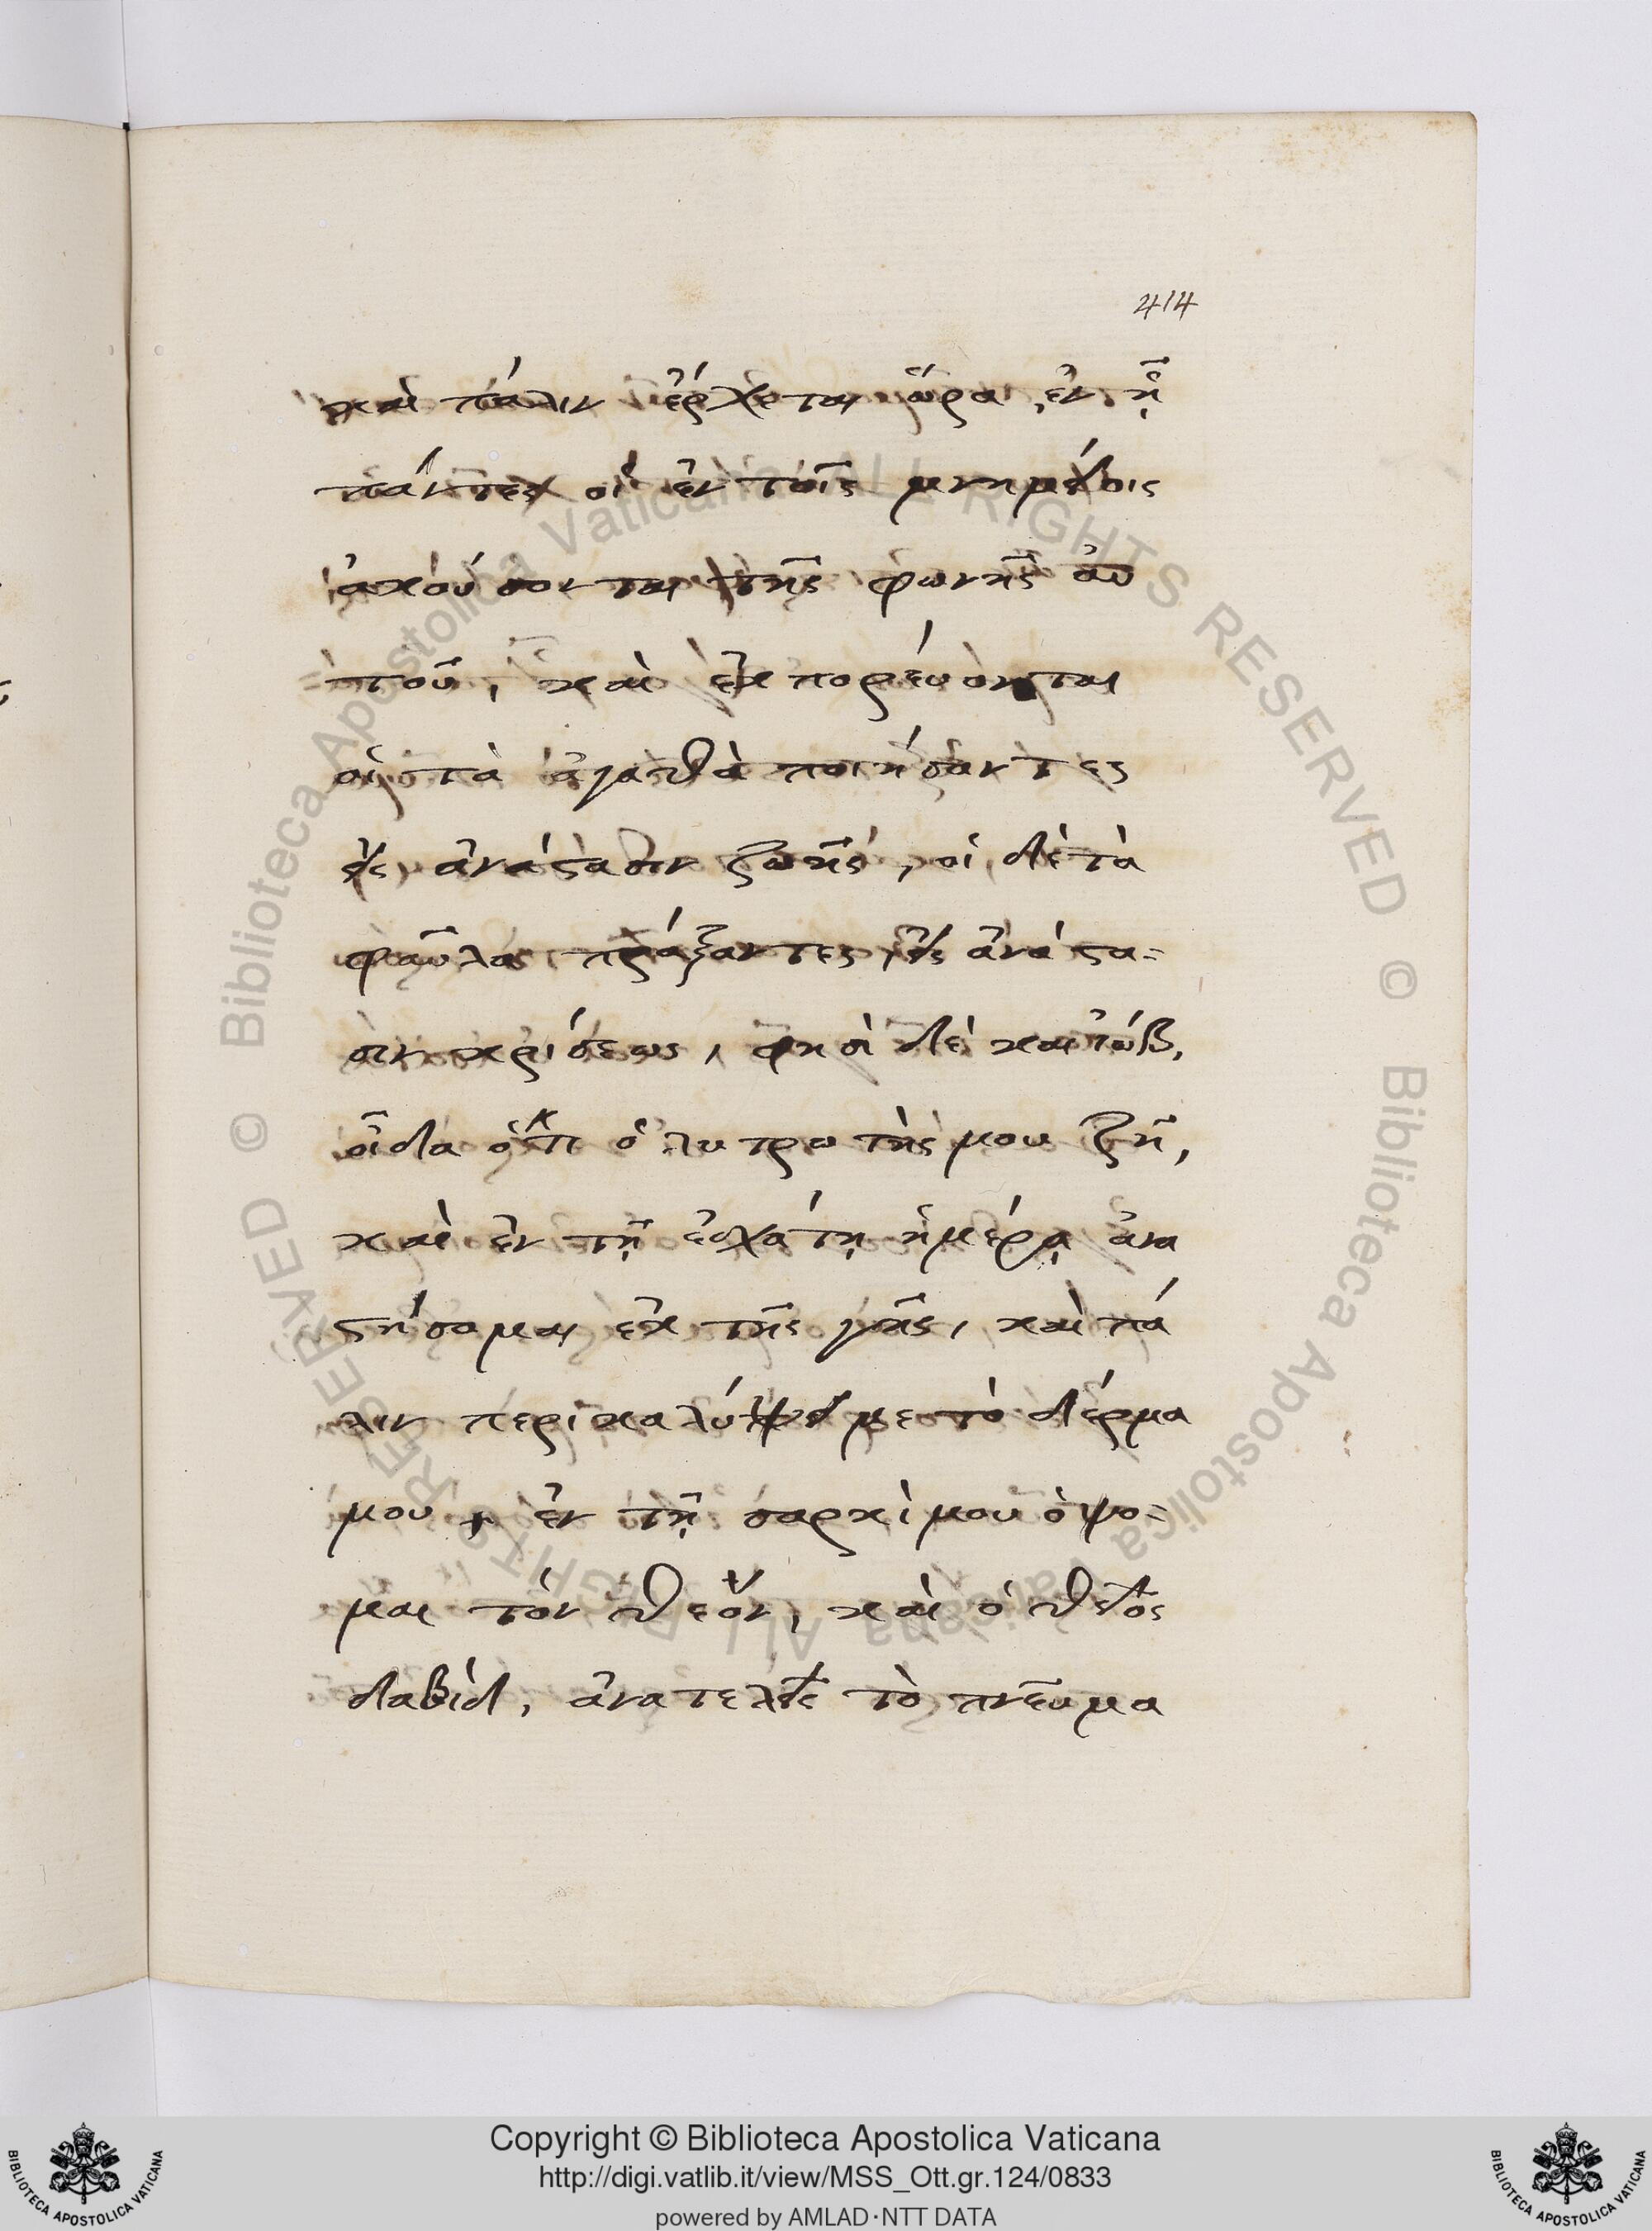 414
καὶ πάλιν ἔρχεται ὥρα, ἐν ᾗ
πάντες οἱ ἐν τοῖς μνημείοις
ἀκούσονται τῆς φωνῆς αὐ
τοῦ, καὶ ἐκπορεύονται
οἱ τὰ ἀγαθὰ ποιήσαντες
εἰς ἀνάστασιν ζωῆς, οἱ δὲ τὰ
φαῦλα πράξαντες, εἰς ἀνάστα-
σιν κρίσεως, φησὶ δὲ καὶ ἰώβ,
οἶδα ὅτι ὁ λυτρωτὴς μου ζῆ,
καὶ ἐν τῇ ἐσχάτῃ ἡμέρᾳ ἀνα
στήσομαι ἐκ τῆς γῆς, καὶ πά
λιν περικαλύψει με τὸ δέρμα
μου, ἐν τῇ σαρκὶ μου ὄψο-
μαι τὸν θεὸν, καὶ ὁ θεῖος
δαβὶδ, ἀνατελεῖς τὸ πνεῦμα
© Biblioteca Apostolica Vaticana ALL RIGHTS RESERVED © Biblioteca Apostolica Vaticana ALL RIGHTS RESERVED
Copyright © Biblioteca Apostolica Vaticana
http://digi.vatlib.it/view/MSS_Ott.gr.124/0833
powered by AMLAD·NTT DATA
BIBLIOTECA APOSTOLICA VATICANA
BIBLIOTECA APOSTOLICA VATICANA